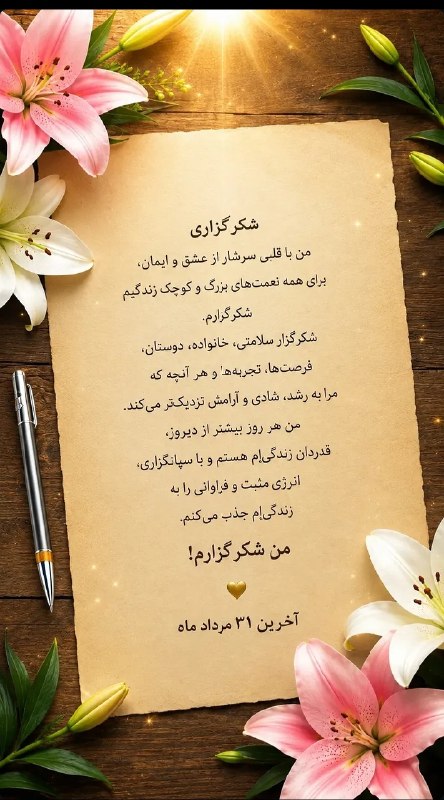 شکرگزاری
من با قلبی سرشار از عشق و ایمان،
برای همه نعمت‌های بزرگ و کوچک زندگیم
شکرگزارم.
شکرگزار سلامتی، خانواده، دوستان،
فرصت‌ها، تجربه‌ها و هر آنچه که
مرا به رشد، شادی و آرامش نزدیک‌تر می‌کند.
من هر روز بیشتر از دیروز،
قدردان زندگی‌ام هستم و با سپانگزاری،
انرژی مثبت و فراوانی را به
زندگی‌ام جذب می‌کنم.
من شکرگزارم!
آخرین ۳۱ مرداد ماه